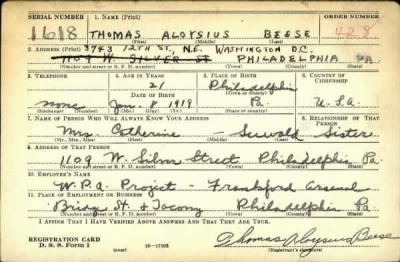 SERIAL NUMBER 1. NAME (Print) ORDER NUMBER
1618 THOMAS ALOYSIUS BEESE 428
(First) (Middle) (Last)
3743 12TH ST., N.E. WASHINGTON D.C.
2. ADDRESS (Print)
1109 W. SILVER ST PHILADELPHIA PA.
(Number and street or R. F. D. number) (Town) (County) (State)
3. TELEPHONE 4. AGE IN YEARS 5. PLACE OF BIRTH 6. COUNTRY OF CITIZENSHIP
21 Philadelphia
DATE OF BIRTH (Town or county)
none Jan. 8 1919 Pa. U.S.A.
(Exchange) (Number) (Mo.) (Day) (Yr.) (State or country)
7. NAME OF PERSON WHO WILL ALWAYS KNOW YOUR ADDRESS 8. RELATIONSHIP OF THAT PERSON
Mrs. Catherine Sister
(Mr., Mrs., Miss) (First) (Middle) (Last)
9. ADDRESS OF THAT PERSON
1109 W. Silver Street Philadelphia Pa.
(Number and street or R. F. D. number) (Town) (County) (State)
10. EMPLOYER'S NAME
W.P.A. Project - Frankford Arsenal
11. PLACE OF EMPLOYMENT OR BUSINESS
Bridge St. & Tacony Philadelphia Pa.
(Number and street or R. F. D. number) (Town) (County) (State)
I AFFIRM THAT I HAVE VERIFIED ABOVE ANSWERS AND THAT THEY ARE TRUE.
REGISTRATION CARD
D. S. S. Form 1 (over) Thomas Aloysius Beese